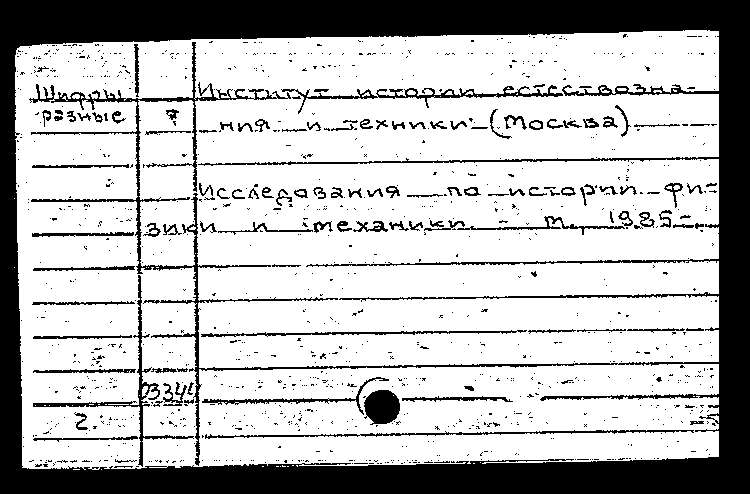 Шифры Институт истории естествозна-
разные ния и техники (Москва)
Исследования по истории фи-
зики и механики. - М., 1985-.
03344
2.